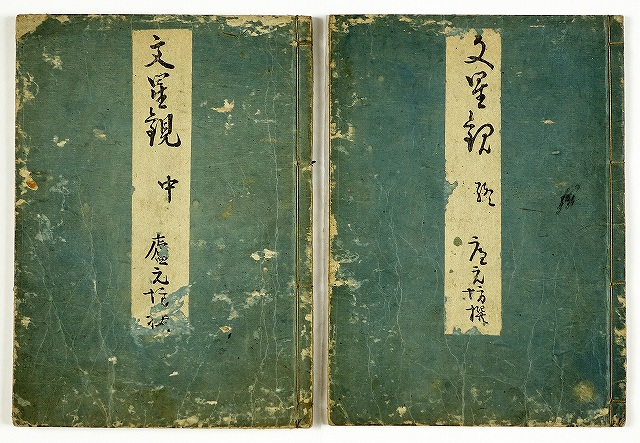 文星観 中 廬元坊撰
文星観 終 廬元坊撰